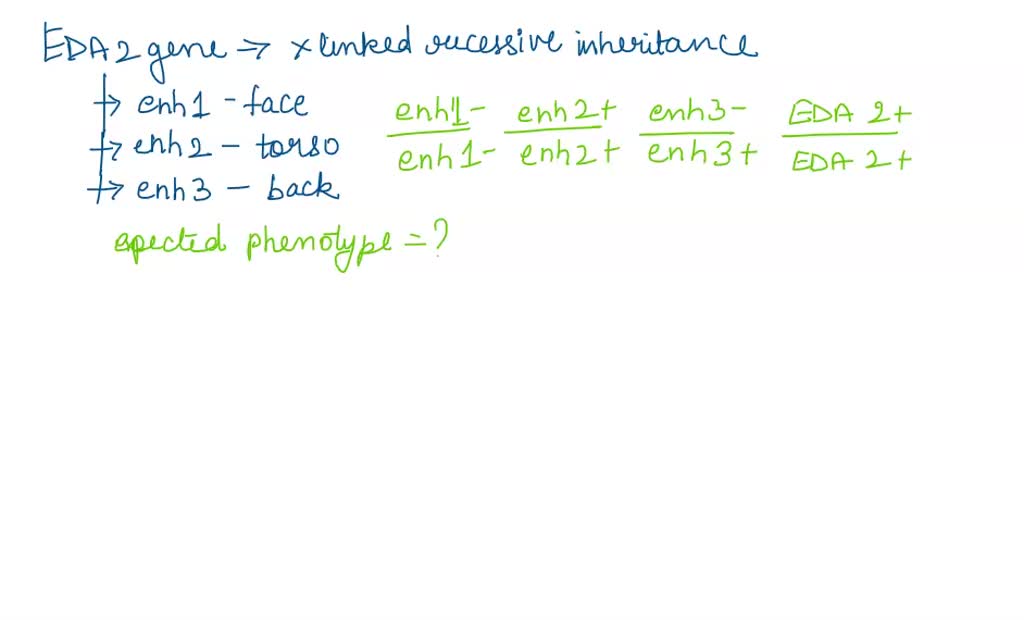 EDA2 gene → x linked rucessive inheritance
→ enh1 - face
→ enh2 - torso
→ enh3 - back
enh1- enh2+ enh3- EDA 2+
enh1- enh2+ enh3+ EDA 2+
epected phenotype = ?